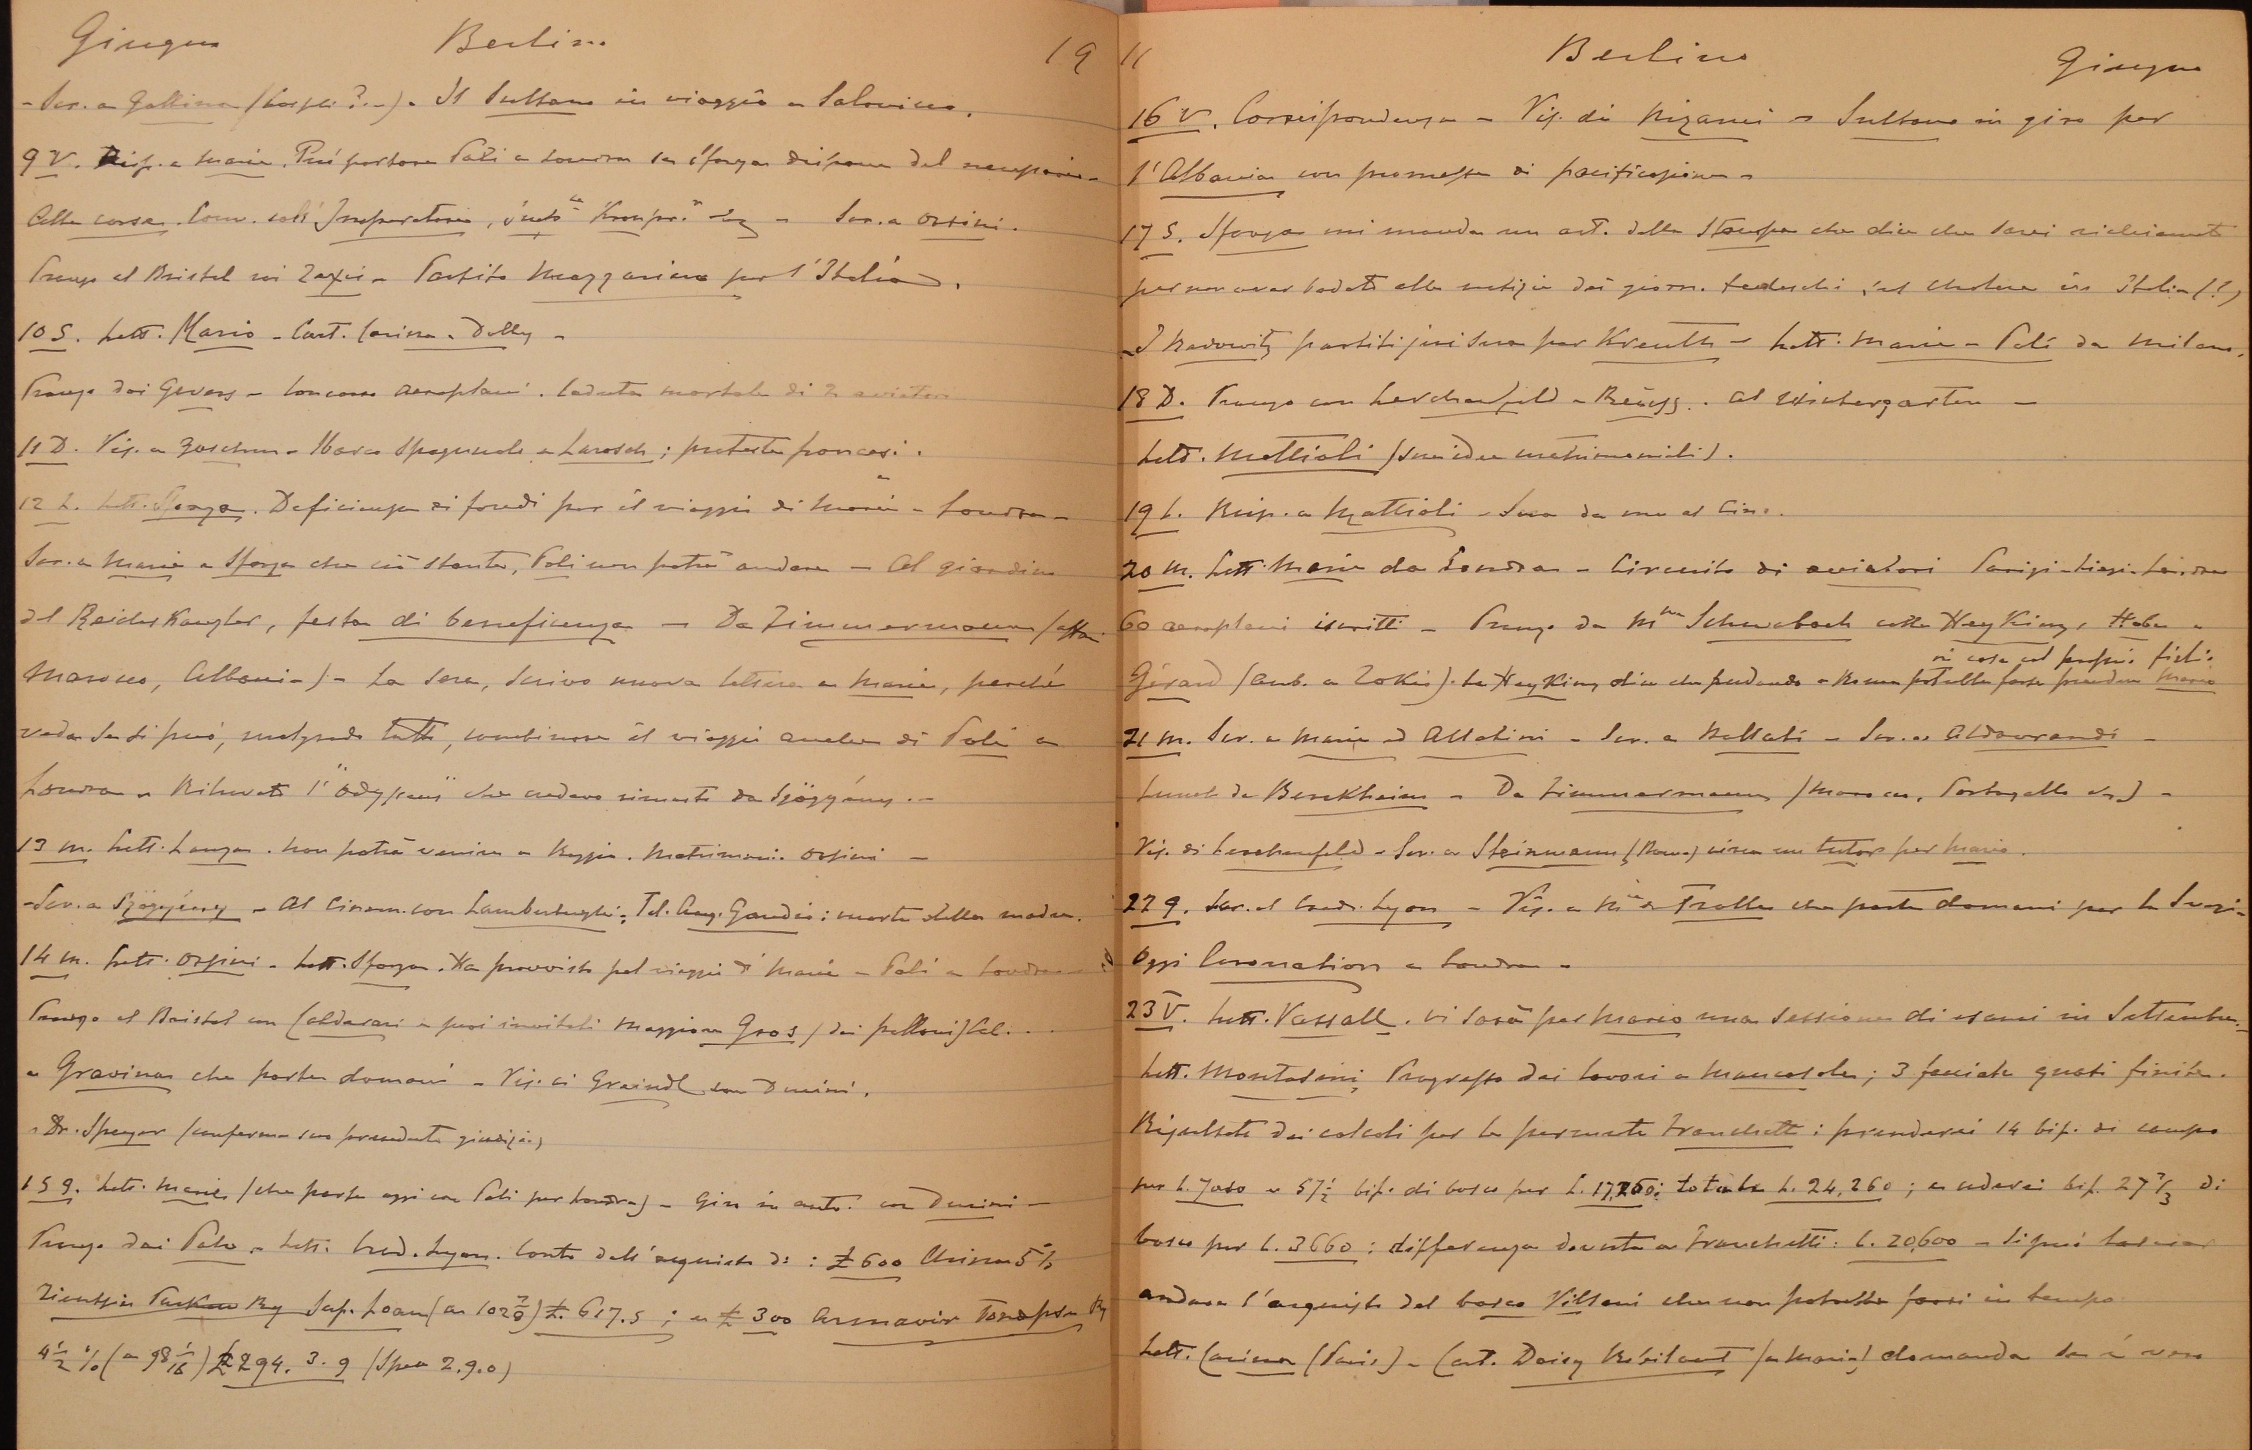 Giugno Berlino 19
- Scr. a Gallina - Il Sultano in viaggio a Salonicco.
9 V. Risp. a Marie. Può portare Poli a Londra se Sforza dispone del necessario -
Alle corse. Conv. coll' Imperatrice, - Scr. a Orsini.
Pranzo al Bristol coi - Partito Mazzarino per l'Italia.
10 S. Lett. Mario - Cart. Carina - Dolly -
Pranzo dai Gevers - Concorso aeroplani. Caduta mortale di 2 aviatori
11 D. Vis. a - Sbarco Spagnuolo a Larasch; proteste francesi.
12 L. Lett. Sforza. Deficienza di fondi per il viaggio di Marie a Londra -
Scr. a Marie e Sforza che ciò stante, Poli non potrà andare - Al giardino
del Reichskanzler, festa di beneficenza - Da Zimmermann (affari
Marocco, Albania) - La sera, scrivo nuova lettera a Marie, perché
veda se si può, malgrado tutto, combinare il viaggio anche di Poli a
Londra - Rilevato l' che credevo rimesto da Szögyény. -
13 M. Lett. Lanza. Non potrà venire a Reggio. Matrimonio Orsini -
- Scr. a Szögyény - Al Cinem. con Lambertenghi; Tel. Aug. Gaudio: morte della madre.
14 M. Lett. Orsini - Lett. Sforza. Ha provvisto pel viaggio di Marie - Poli a Londra -
Pranzo al Bristol con Caldarari e suoi invitati Maggiore Gros (dei palloni) Cal...
e Gravina che parte domani - Vis. di Greindl con Dusini.
- Dr. Spenzer (conferma suo precedente giudizio)
15 G. Lett. Marie (che parte oggi con Poli per Londra) - Giro in auto. con Dusini -
Pranzo dai Polo - Lett. Cred. Lyon. Conto dell'acquisto di: £ 600 China 5%
Tientsin Pukow Ry Sup. Loan (a 102 7/8) £. 617.5; e £ 300 Armavir Touapse Ry
4 1/2 % (a 98 1/16) £ 294. 3. 9 (Spese 2.9.0)
11 Berlino Giugno
16 V. Corrispondenza - Vis. di Nizami - Sultano in giro per
l'Albania con promesse di pacificazione -
17 S. Sforza mi manda un art. della Stampa che dice che sarei richiamato
per non aver badato alle notizie dei giorn. tedeschi sul cholera in Italia (!)
- I Radowitz partiti ieri sera per Kreuth - Lett. Marie - Poli da Milano.
18 D. Pranzo con Lerchenfeld e Reuss. al Wintergarten -
Lett. Mattioli (sue idee matrimoniali).
19 L. Risp. a Mattioli - Sera da me al Cine.
20 M. Lett. Marie da Londra - Circuito di aviatori Parigi-Liegi-Londra
60 aeroplani iscritti - Pranzo da Mme Schwabach colla Heyking, e
vi casa coi propri figli.
Gérard (amb. a Tokio). La Heyking dice che andando a Roma potrebbe forse prendere Mario
21 M. Scr. a Marie ed Allatini - Scr. a Bellati - Scr. a Aldovrandi -
Lunch da Berckheim - Da Zimmermann (Marocco, Portogallo) -
Vis. di Lerchenfeld - Scr. a Steinmann (Roma) circa un tutor per Mario.
22 G. Scr. al Cred. Lyon - Vis. a Trolle che parte domani per la Svezia
Oggi Coronation a Londra -
23 V. Lett. Vassall. vi sarà per Mario una sessione di esami in Settembre.
Lett. Montasini. Progresso dei lavori a Mancasale; 3 facciate quasi finite.
Risultato dei calcoli per la permuta Franchetti: prenderei 14 bif. di campo
per L. 7000 e 57 1/2 bif. di bosco per L. 17,260: totale L. 24,260; e cederei bif. 27 2/3 di
bosco per L. 3660: differenza dovuta a Franchetti: L. 20,600 - Si può lasciar
andare l'acquisto del bosco Villani che non potrebbe farsi in tempo.
Lett. Carina (Paris) - Cart. Daisy Robilant (a Maria) domanda se è vero